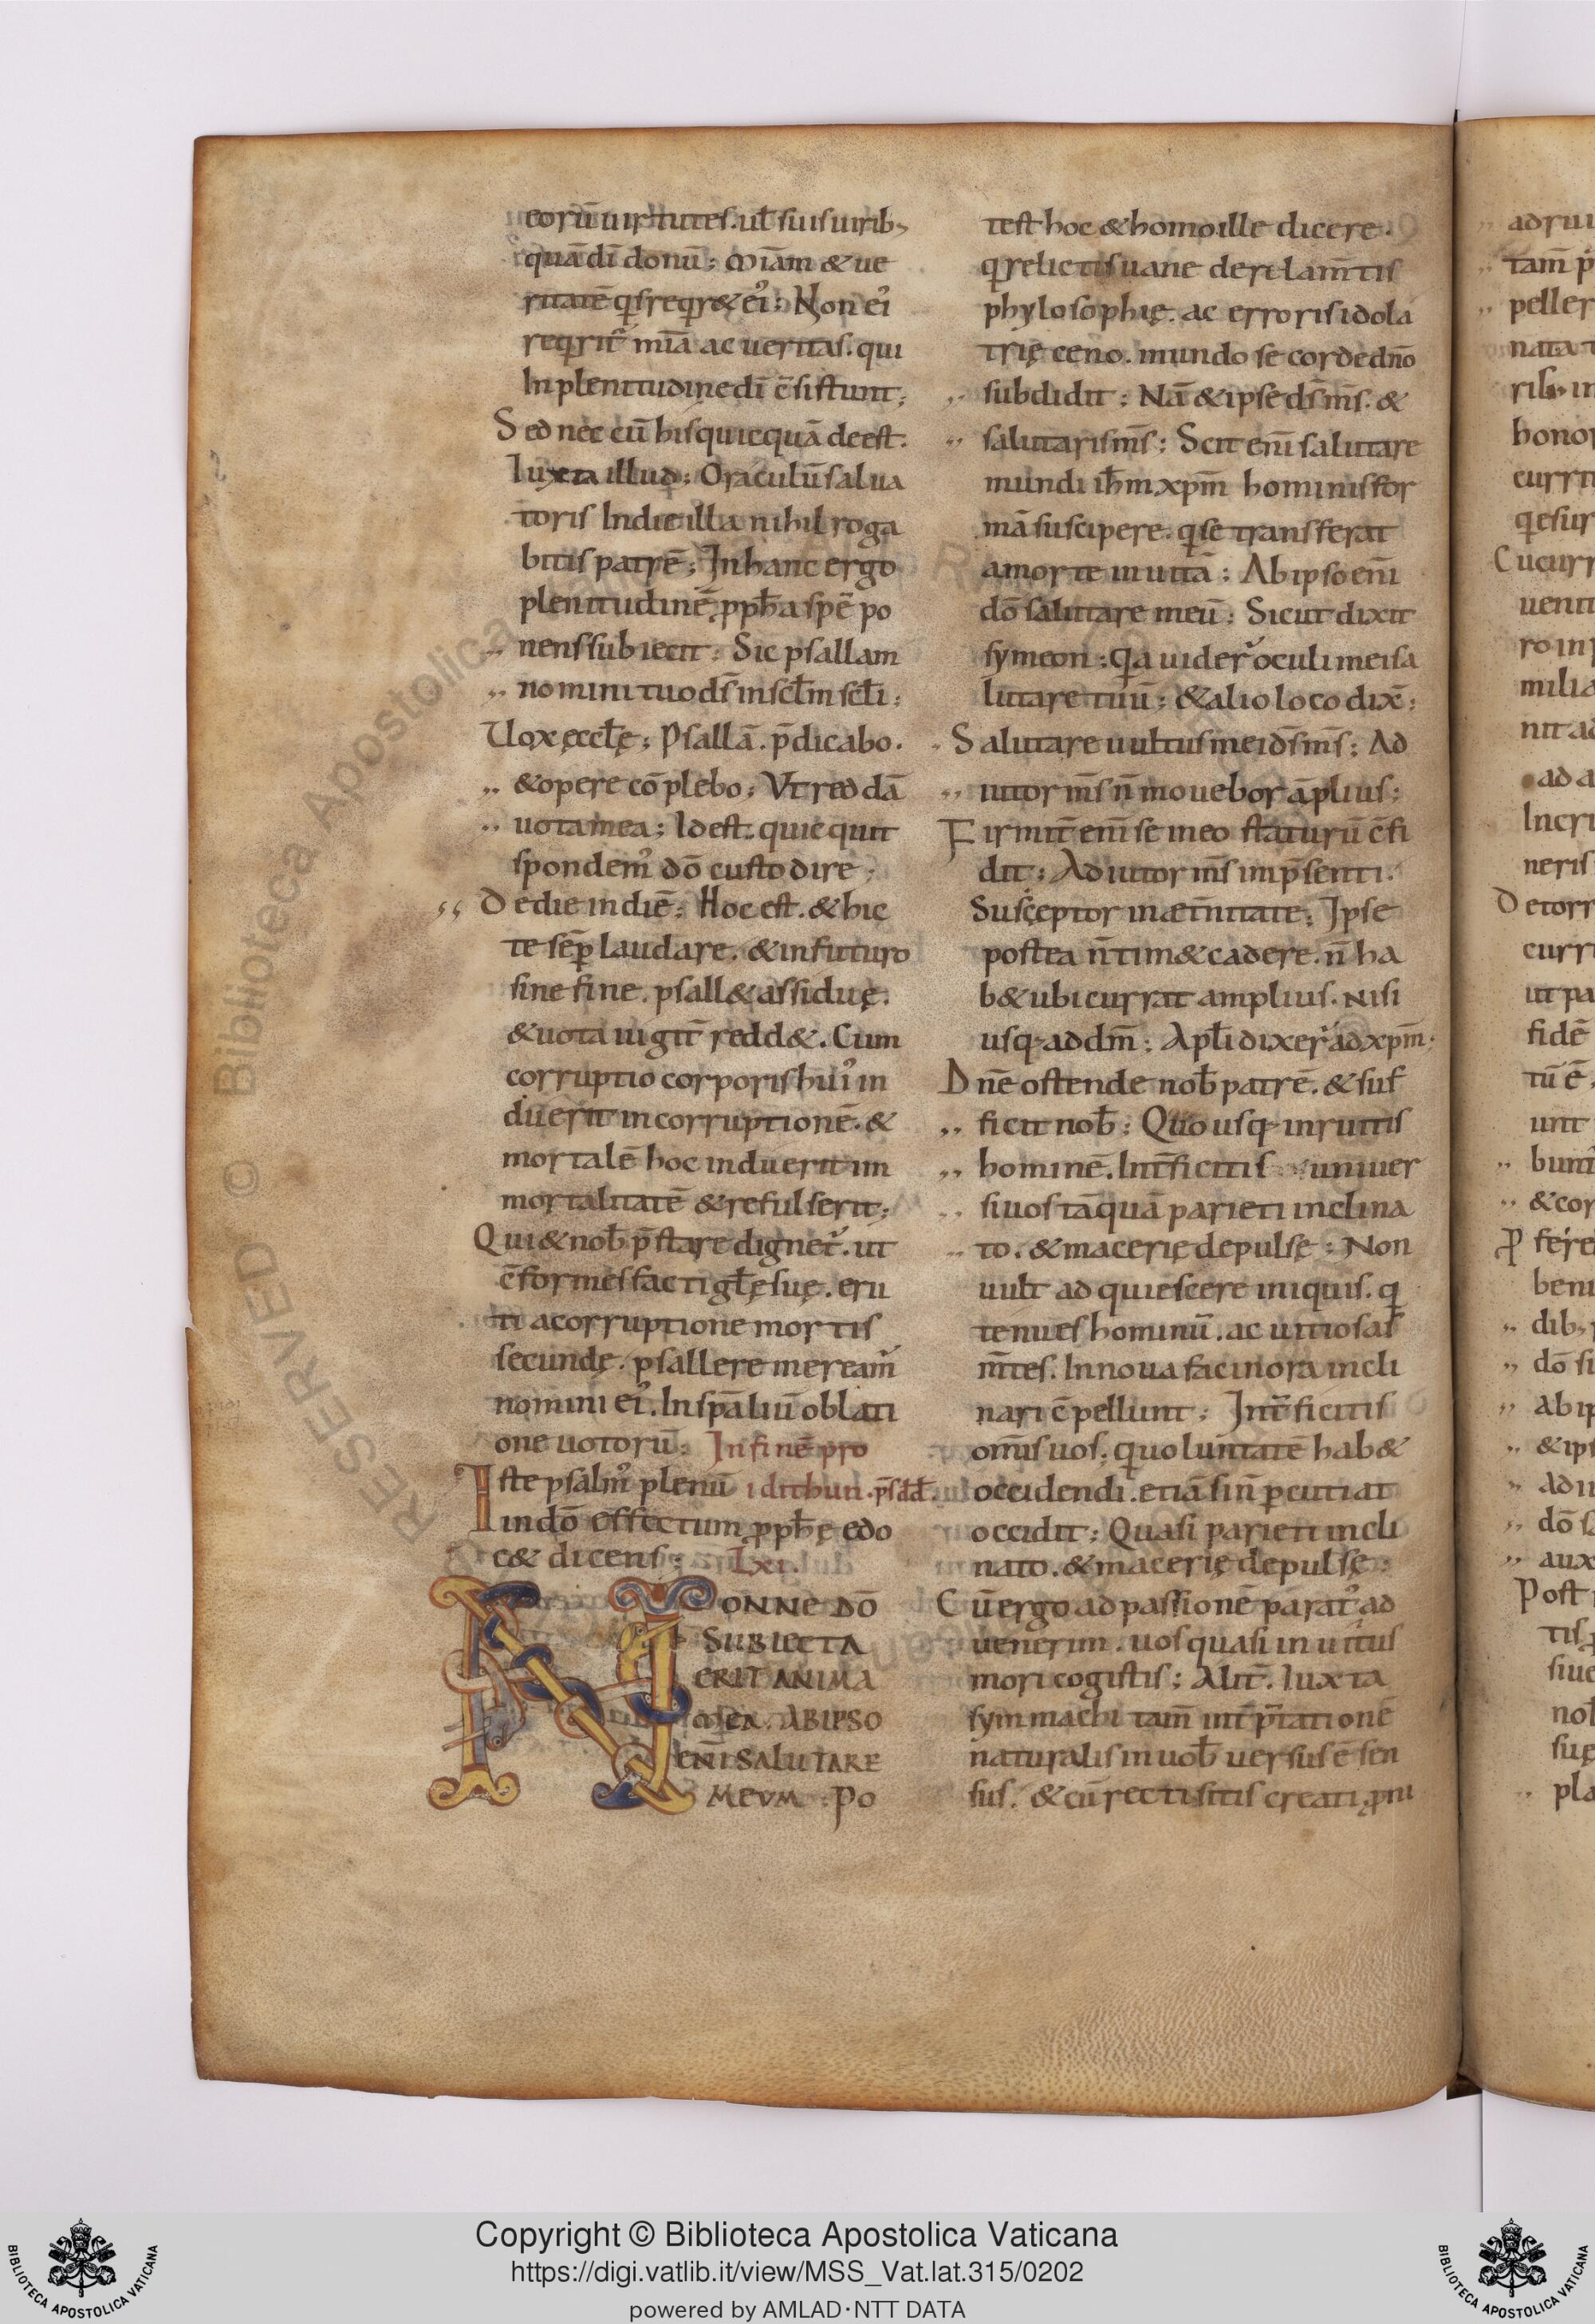 eorū uirtutes. ut̄ suis uirib;
quā dī donū; Miām & ue
ritatē q̄s req̄r& ei᾽; Non ei᾽
req̄rit᾽ mīa ac ueritas. qui
In plenitudine dī c̄sistunt;
Sed nec cū his quicquā deest.
Iuxta illud; Oraculū salua
toris In die illa nihil roga
bitis patrē; In hanc ergo
plenitudinē ꝓph̄a spē po
nens subiecit; Sic psallam
nomini tuo ds̄ in scl̄m scl̄i;
Uox ęccl̄ę; Psallā. p̄dicabo.
& opere cōplebo; Vt reddā
uota mea; Id est. quicquit
spondem᾽ dō custodire;
De die in diē; Hoc est. & hic
te sēp laudare. & in futuro
sine fine. psall& assiduę.
& uota iugit̄ redd&. Cum
corruptio corporis hui᾽ in
duerit incorruptionē. &
mortalē hoc induerit im
mortalitatē & refulserit;
Qui & nob̄ p̄stare dignet᾽. ut
c̄formes facti gl̄ę suę. eru
ti a corruptione mortis
secundę. psallere meream᾽
nomini ei᾽. In sp̄aliū oblati
one uotorū; In finē pro
Iste psalm᾽ plenū idithun. ps̄ dd̄.
in dō effectum ꝓph̄ę edo
c& dicens; Lxi.
NONNE DŌ
SUBIECTA
ERIT ANIMA
MEA. ABIPSO
ENĪ SALUTARE
MEVM; Po
test hoc & homo ille dicere.
q̄ relictis uane declam̄tis
phylosophię. ac erroris idola
trię ceno. mundo se corde dn̄o
subdidit; Nā & ipse ds̄ ms̄. &
salutaris ms̄; Scit enī salutare
mundi ih̄m xp̄m hominis for
mā suscipere. q̄ se transferat
a morte in uitā; Ab ipso enī
dō salutare meū; Sicut dixit
symeon; q̄a uider᾽ oculi mei sa
lutare tuū; & alio loco dix̄;
Salutare uultus mei ds̄ ms̄; Ad
iutor ms̄ n̄ mouebor āplius;
Firmit̄ enī se in eo staturū c̄fi
dit; Adiutor ms̄ in p̄senti.
Susceptor in ęt̄nitate; Ipse
postea n̄ tim& cadere. n̄ ha
b& ubi currat amplius. nisi
usq; ad dm̄; Apl̄i dixer᾽ ad xp̄m;
Dnē ostende nob̄ patrē. & suf
ficit nob̄; Quo usq; inruitis
hominē. Int̄ficitis uniuer
si uos tāquā parieti inclina
to. & macerię depulsę; Non
uult adquiescere iniquis. q
tenues hominū. ac uitiosas
m̄tes. In noua facinora incli
nari c̄pellunt; Int̄ficitis
om̄s uos; quo luntatē hab&
occidendi. etiā si n̄ ꝑcutiat
occidit; Quasi parieti incli
nato. & macerię depulsę;
Cū ergo ad passionē parat᾽ ad
uenerim. uos quasi inuitus
mori cogistis; Alit̄. Iuxta
symmachi tam̄ int̄p̄tationē
naturalis in uob̄ uersus ē sen
sus. & cū recti sitis creati. ꝓni
Copyright © Biblioteca Apostolica Vaticana
https://digi.vatlib.it/view/MSS_Vat.lat.315/0202
powered by AMLAD·NTT DATA
BIBLIOTECA APOSTOLICA VATICANA
BIBLIOTECA APOSTOLICA VATICANA